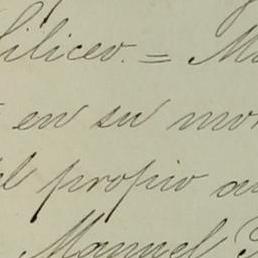 Siliceo. = Ma
en su mo
l propio a
Manuel